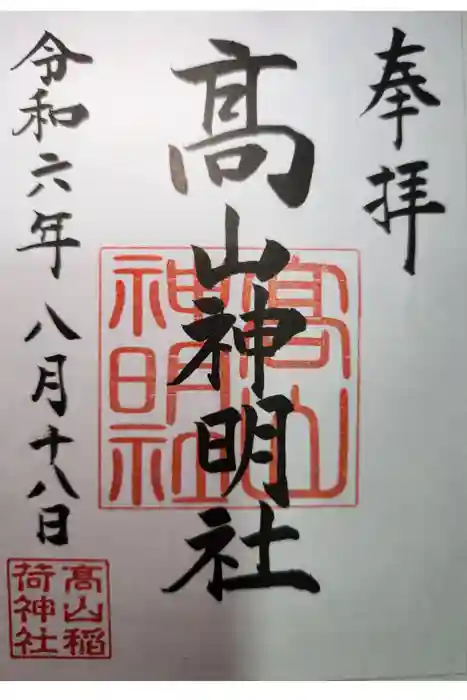 奉拝
髙山神明社
髙山
神明社
令和六年 八月十八日
髙山稲
荷神社